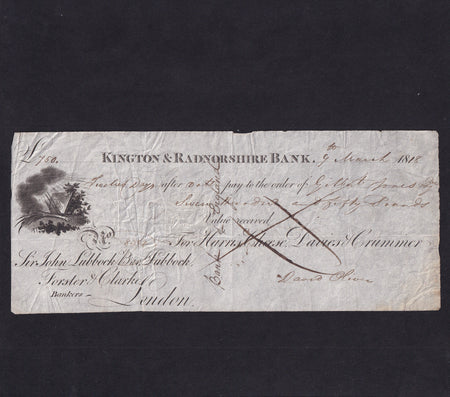 £750. KINGTON & RADNORSHIRE BANK. 9 March 1818
Twelve Days after date pay to the order of Gilbert Jones
Seven hundred and fifty Pounds
Value received
No For Harris, Cheese, Davies & Crummer
Sir John Lubbock Lubbock
Forster & Clarke
Bankers London.
David
Bank of England